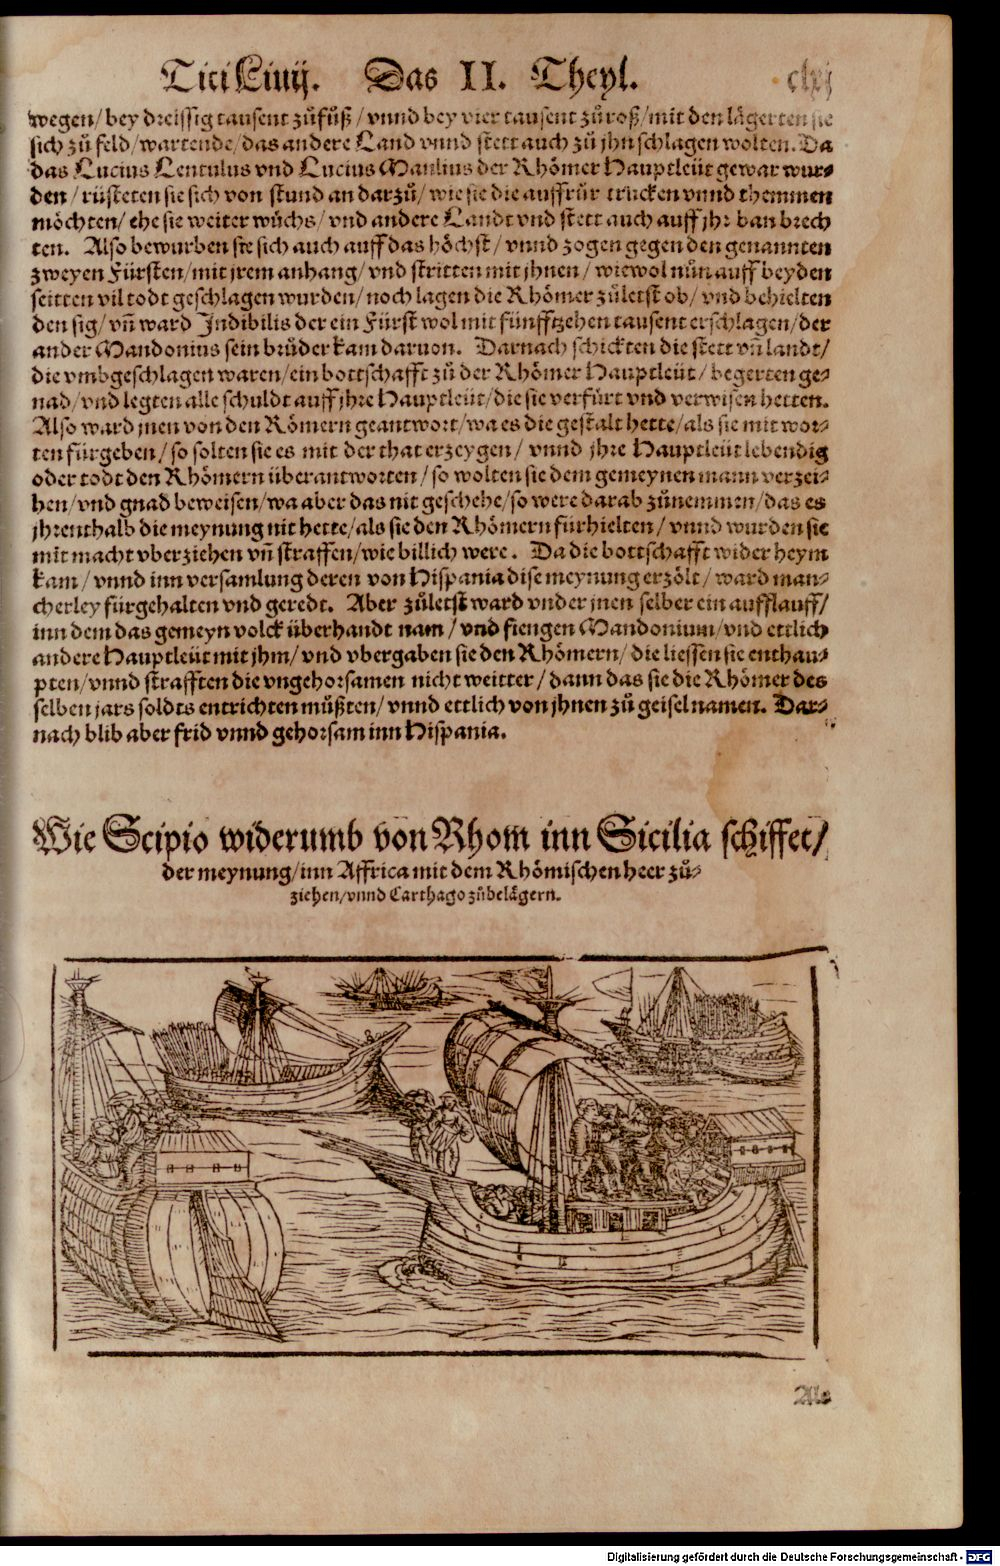 Titi Liuij. Das II. Theyl. clxj
wegen/ bey dreissig tausent zůfůß / vnnd bey vier tausent zů roß/ mit den lägerten sie
sich zů feld/ wartende/ das andere Land vnnd stett auch zů jhn schlagen wolten. Da
das Lucius Lentulus vnd Lucius Manlius der Rhömer Hauptleüt gewar wur⸗
den / rüsteten sie sich von stund an darzů/ wie sie die auffrůr trucken vnnd themmen
möchten/ ehe sie weiter wůchs/ vnd andere Landt vnd stett auch auff jhr ban brech
ten. Also bewurben sie sich auch auff das höchst / vnnd zogen gegen den genannten
zweyen Fürsten/ mit jrem anhang/ vnd stritten mit jhnen / wiewol nůn auff beyden
seitten vil todt geschlagen wurden/ noch lagen die Rhömer zůletst ob/ vnd behielten
den sig/ vñ ward Indibilis der ein Fürst wol mit fünfftzehen tausent erschlagen/ der
ander Mandonius sein brůder kam daruon. Darnach schickten die stett vñ landt/
die vmbgeschlagen waren/ ein bottschafft zů der Rhömer Hauptleüt / begerten ge⸗
nad/ vnd legten alle schuldt auff jhre Hauptleüt/ die sie verfürt vnd verwisen hetten.
Also ward jnen von den Römern geantwort/ wa es die gestalt hette/ als sie mit wor⸗
ten fürgeben/ so solten sie es mit der that erzeygen / vnnd jhre Hauptleüt lebendig
oder todt den Rhömern überantworten / so wolten sie dem gemeynen mann verzei⸗
hen/ vnd gnad beweisen/ wa aber das nit geschehe/ so were darab zůnemmen/ das es
jhrenthalb die meynung nit hette/ als sie den Rhömern fürhielten / vnnd wurden sie
mit macht vberziehen vñ straffen/ wie billich were. Da die bottschafft wider heym
kam / vnnd inn versamlung deren von Hispania dise meynung erzölt / ward man⸗
cherley fürgehalten vnd geredt. Aber zůletst ward vnder jnen selber ein aufflauff/
inn dem das gemeyn volck überhandt nam / vnd fiengen Mandonium/ vnd ettlich
andere Hauptleüt mit jhm/ vnd vbergaben sie den Rhömern/ die liessen sie enthau⸗
pten/ vnnd strafften die vngehorsamen nicht weitter / dann das sie die Rhömer des
selben jars solds entrichten můßten/ vnnd ettlich von jhnen zů geisel namen. Dar⸗
nach blib aber frid vnnd gehorsam inn Hispania.
Wie Scipio widerumb von Rhom inn Sicilia schiffet/
der meynung/ inn Affrica mit dem Rhömischen heer zů⸗
ziehen/ vnnd Carthago zůbelägern.
Als
Digitalisierung gefördert durch die Deutsche Forschungsgemeinschaft - DFG